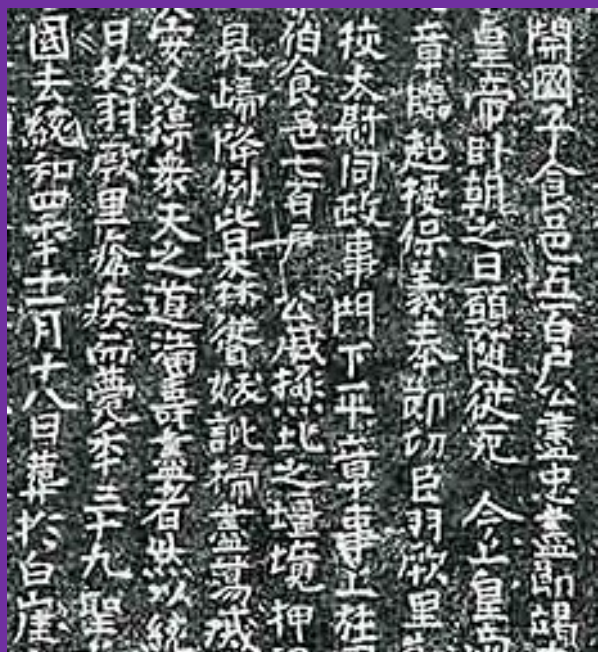 開國子食邑五百戶公盡忠盡節竭
皇帝臥朝之日願隨從死 今上皇帝
章臨超授保義奉節功臣羽厥里
校太尉同政事門下平章事上柱
伯食邑七百戶 公威極北之壃境押
俗例皆
安人得衆天之道滿壽盡者然以統
日於羽厥里瘡疾而薨年三十九聖
國去統和四年十一月十八日葬於白崖